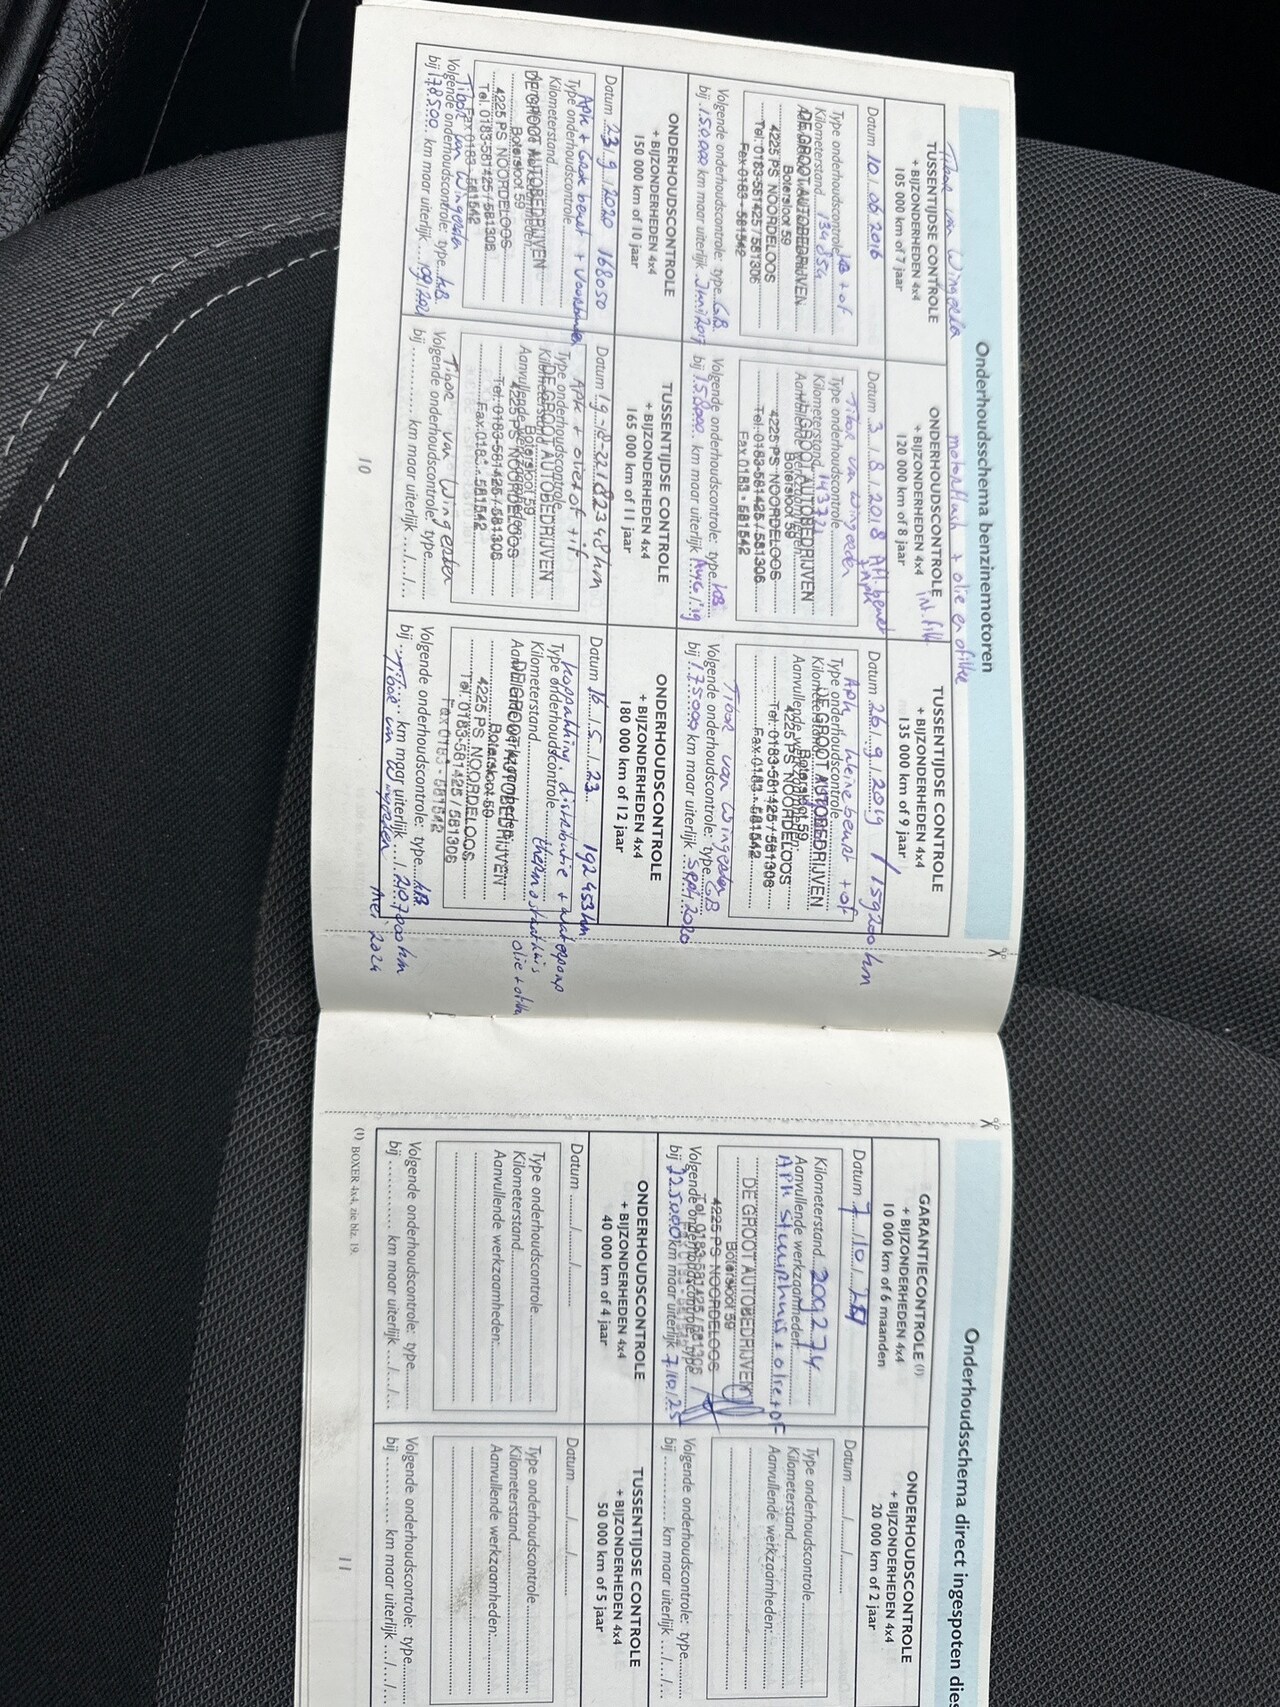 Onderhoudsschema benzinemotoren
Tibor van Wingerden
motorflush + olie en ofilter
TUSSENTIJDSE CONTROLE
+ BIJZONDERHEDEN 4x4
105 000 km of 7 jaar
Datum 10/06 2016
Type onderhoudscontrole KB + of
Kilometerstand 134054
DE GROOT AUTOBEDRIJVEN
Botersloot 59
4225 PS NOORDELOOS
Tel. 0183-581425 / 581306
Fax 0183 - 581542
Volgende onderhoudscontrole: type G.B.
bij 150.000 km maar uiterlijk Juni/2017
ONDERHOUDSCONTROLE
+ BIJZONDERHEDEN 4x4
120 000 km of 8 jaar
Int. filt.
Datum 3/8/2018 Afl. beurt
+ APK
Type onderhoudscontrole
Tibor van Wingerden
Kilometerstand
Aanvullende werkzaamheden:
DE GROOT AUTOBEDRIJVEN
Botersloot 59
4225 PS NOORDELOOS
Tel. 0183-581425 / 581306
Fax 0183 - 581542
Volgende onderhoudscontrole: type KB
bij 158000 km maar uiterlijk Aug/'19
TUSSENTIJDSE CONTROLE
+ BIJZONDERHEDEN 4x4
135 000 km of 9 jaar
Datum 26/9/2019 / 159200 km
Type onderhoudscontrole
APK kleine beurt + of
Kilometerstand
Aanvullende werkzaamheden:
DE GROOT AUTOBEDRIJVEN
Botersloot 59
4225 PS NOORDELOOS
Tel. 0183-581425 / 581306
Fax 0183 - 581542
Tibor van Wingerden
Volgende onderhoudscontrole: type GB
bij 175000 km maar uiterlijk Sept 2020
ONDERHOUDSCONTROLE
+ BIJZONDERHEDEN 4x4
150 000 km of 10 jaar
Datum 23/9/2020 168050
APK + Grote beurt +
Type onderhoudscontrole
Kilometerstand
DE GROOT AUTOBEDRIJVEN
Botersloot 59
4225 PS NOORDELOOS
Tel. 0183-581425 / 581306
Fax 0183 - 581542
Tibor van Wingerden
Volgende onderhoudscontrole: type KB
bij 178.500 km maar uiterlijk
TUSSENTIJDSE CONTROLE
+ BIJZONDERHEDEN 4x4
165 000 km of 11 jaar
Datum 19-10-22 / 182348 km
APK + olie + of + if
Type onderhoudscontrole
Kilometerstand
Aanvullende werkzaamheden:
DE GROOT AUTOBEDRIJVEN
Botersloot 59
4225 PS NOORDELOOS
Tel. 0183-581425 / 581306
Fax 0183 - 581542
Tibor van Wingerden
Volgende onderhoudscontrole: type
bij km maar uiterlijk .../.../...
ONDERHOUDSCONTROLE
+ BIJZONDERHEDEN 4x4
180 000 km of 12 jaar
Datum 16/5/23 192453 km
Koppakking, distributie + waterpomp
Type onderhoudscontrole
thermostaathuis
Kilometerstand
olie + ofilter
Aanvullende werkzaamheden:
DE GROOT AUTOBEDRIJVEN
Botersloot 59
4225 PS NOORDELOOS
Tel. 0183-581425 / 581306
Fax 0183 - 581542
Volgende onderhoudscontrole: type KB
bij km maar uiterlijk 207000 km
Tibor van Wingerden
Mei 2024
10
Onderhoudsschema direct ingespoten dies
GARANTIECONTROLE (1)
+ BIJZONDERHEDEN 4x4
10 000 km of 6 maanden
Datum 7/10/24
Kilometerstand 209274
Aanvullende werkzaamheden:
APK stuurhuis + olie + of
DE GROOT AUTOBEDRIJVEN
Botersloot 59
4225 PS NOORDELOOS
Tel. 0183-581425 / 581306
Fax 0183 - 581542
Volgende onderhoudscontrole: type
bij 225000 km maar uiterlijk 7/10/25
ONDERHOUDSCONTROLE
+ BIJZONDERHEDEN 4x4
20 000 km of 2 jaar
Datum ......./......./.......
Type onderhoudscontrole
Kilometerstand
Aanvullende werkzaamheden:
Volgende onderhoudscontrole: type
bij km maar uiterlijk .../.../...
ONDERHOUDSCONTROLE
+ BIJZONDERHEDEN 4x4
40 000 km of 4 jaar
Datum ......./......./.......
Type onderhoudscontrole
Kilometerstand
Aanvullende werkzaamheden:
Volgende onderhoudscontrole: type
bij km maar uiterlijk .../.../...
TUSSENTIJDSE CONTROLE
+ BIJZONDERHEDEN 4x4
50 000 km of 5 jaar
Datum ......./......./.......
Type onderhoudscontrole
Kilometerstand
Aanvullende werkzaamheden:
Volgende onderhoudscontrole: type
bij km maar uiterlijk .../.../...
(1) BOXER 4x4, zie blz. 19.
11